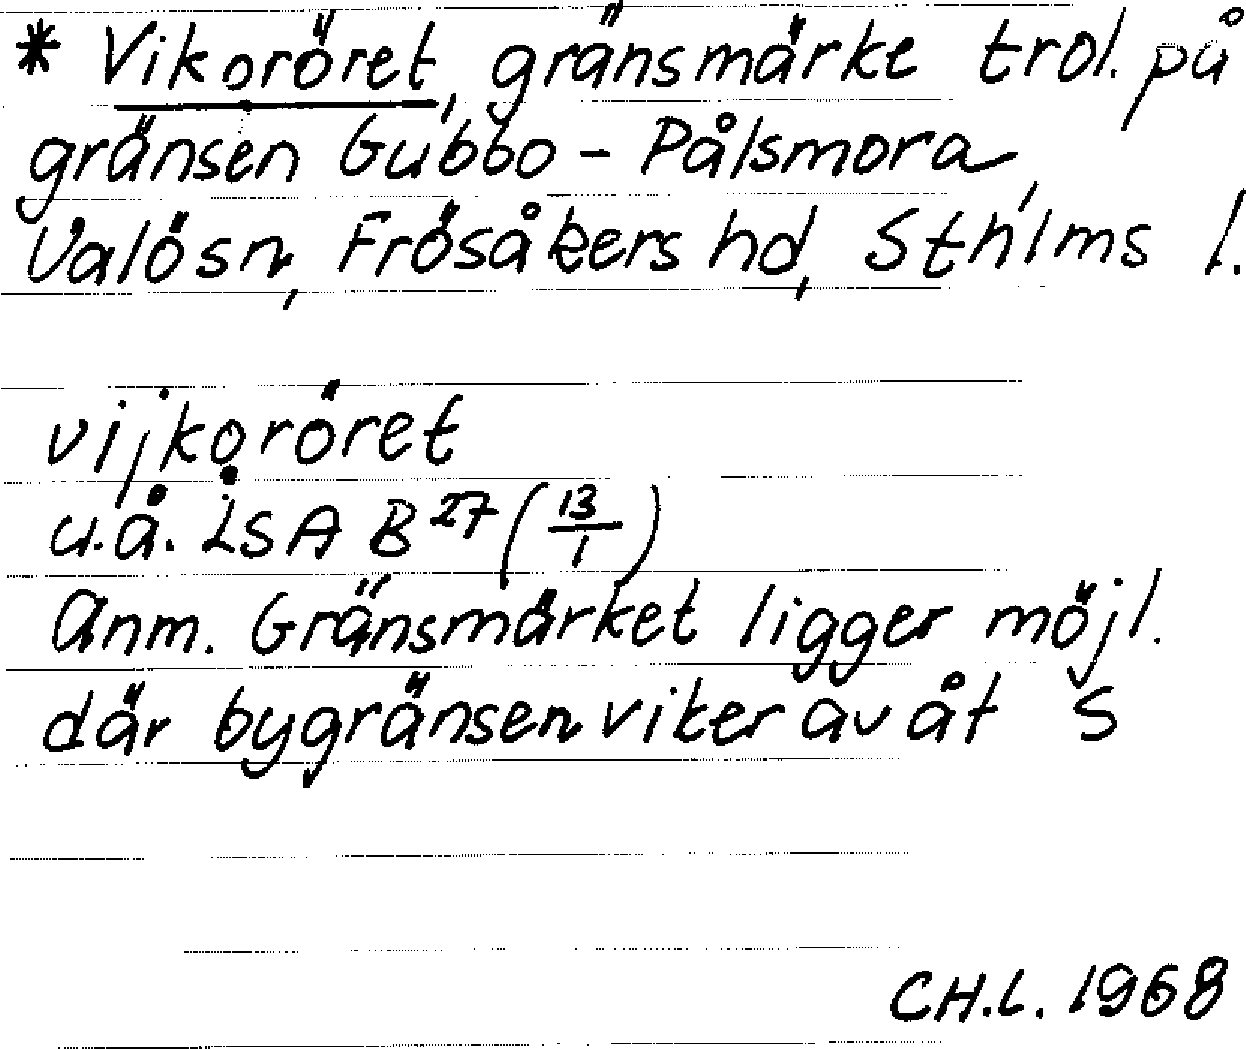 * Vikoröret, gränsmärke trol. på
gränsen Gubbo - Pålsmora,
Valösn, Frösåkers hd, Sthlms l.
vijkoröret
u.å. LSA B 27 (13/1)
Anm. Gränsmärket ligger möjl.
där bygränsen viker av åt S
CH.L. 1968